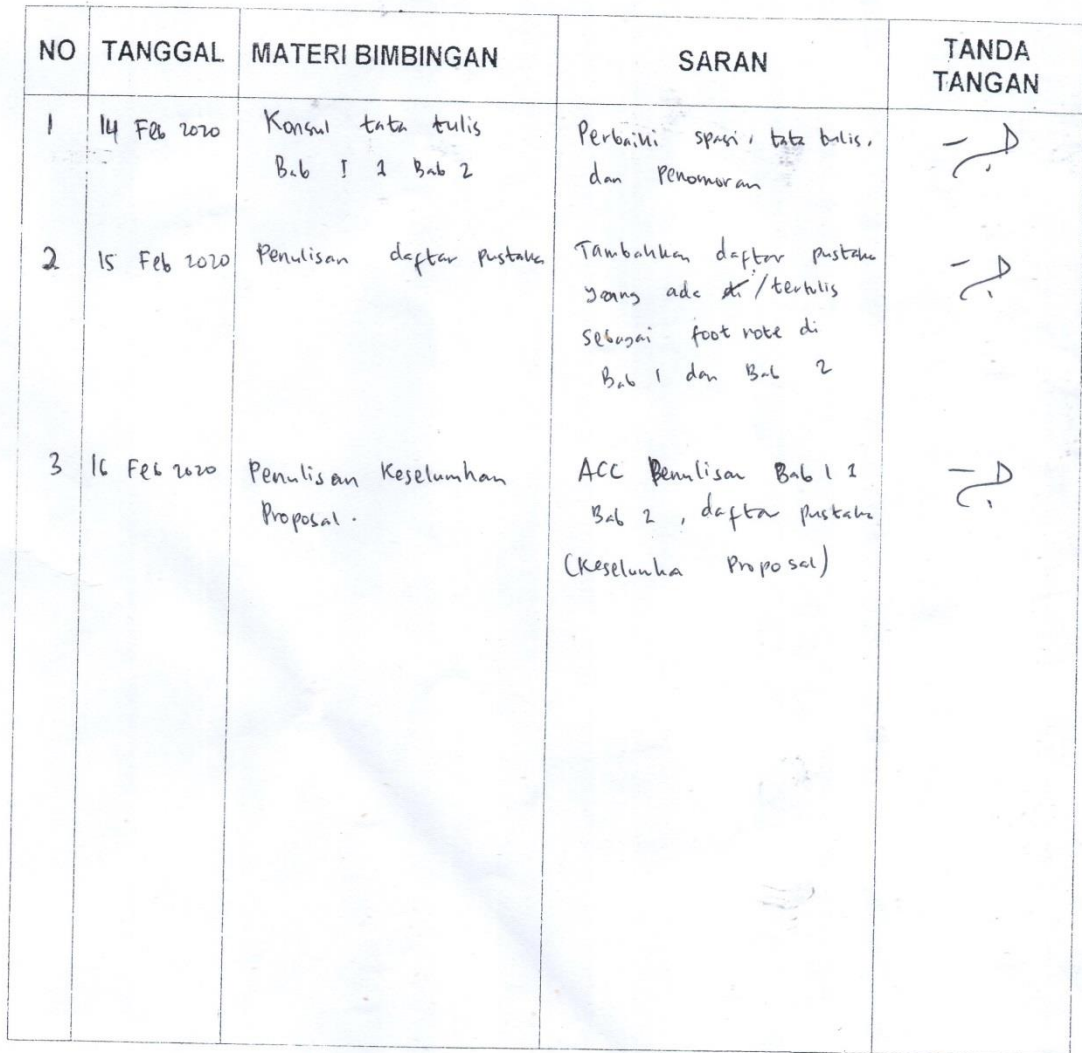 NO TANGGAL MATERI BIMBINGAN SARAN TANDA TANGAN
1 14 Feb 2020 Konsul tata tulis Perbaiki spasi, tata tulis,
Bab I & Bab 2 dan Penomoran
2 15 Feb 2020 Penulisan daftar pustaka Tambahkan daftar pustaka
yang ada di / tertulis
sebagai foot note di
Bab 1 dan Bab 2
3 16 Feb 2020 Penulisan Keseluruhan ACC Penulisan Bab 1 &
Proposal. Bab 2, daftar pustaka
(Keseluruha Proposal)